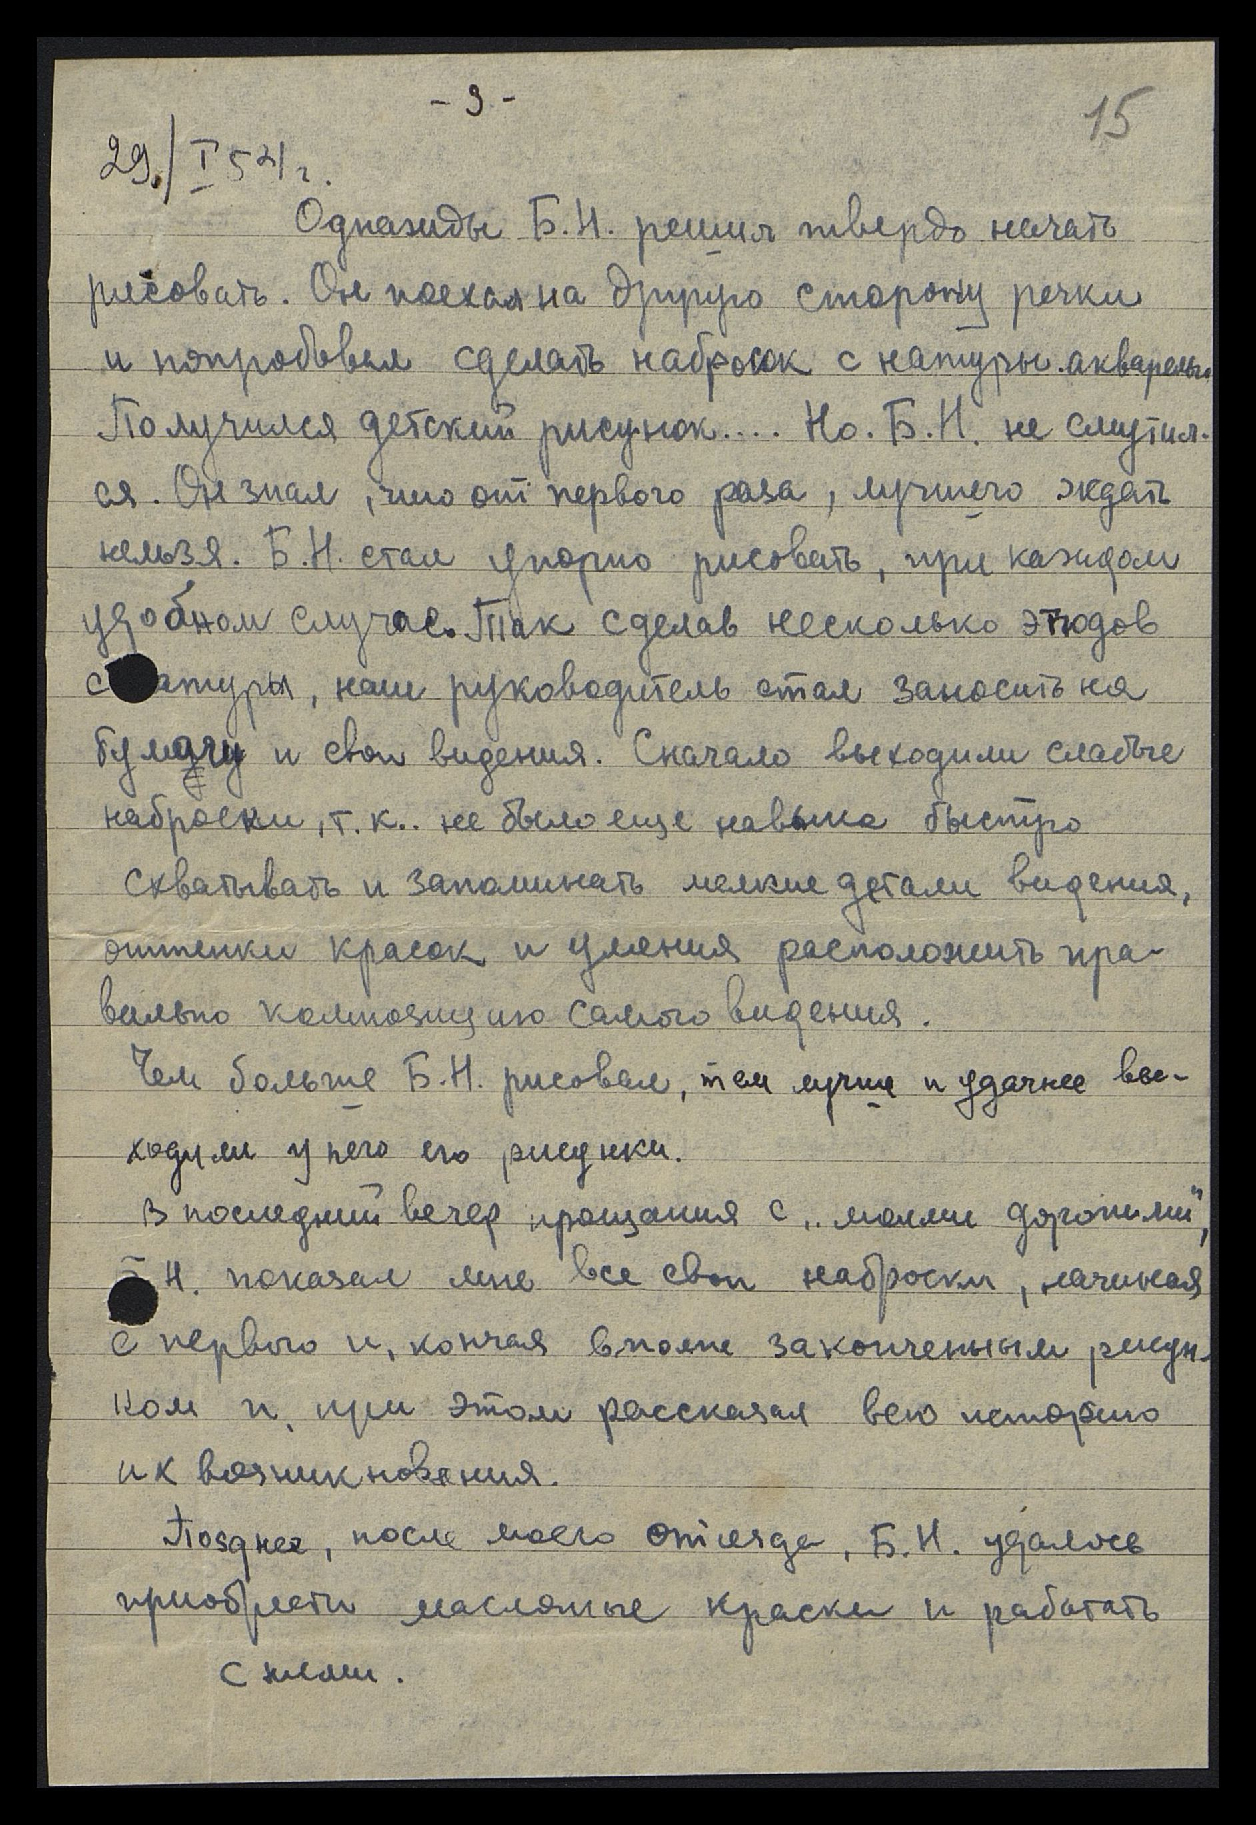 - 9 -
15
29./I 54 г.
Однажды Б.Н. решил твердо начать
рисовать. Он поехал на другую сторону речки
и попробовал сделать набросок с натуры акварелью.
Получился детский рисунок.... Но. Б.Н. не смутил-
ся. Он знал, что от первого раза, лучшего ждать
нельзя. Б.Н. стал упорно рисовать, при каждом
удобном случае. Так сделав несколько этюдов
с атуры, наш руководитель стал заносить на
бумагу и свои видения. Сначало выходили слабые
наброски, т.к.. не было еще навыка быстро
схватывать и запоминать мелкие детали видения,
оттенки красок и умения расположить пра-
вильно композицию самого видения.
Чем больше Б.Н. рисовал, тем лучше и удачнее вы-
ходили у него его рисунки.
В последний вечер прощания с „моими дорогими",
Н. показал мне все свои наброски, начиная
с первого и, кончая вполне законченным рисун-
ком и, при этом рассказал всю историю
их возникновения.
Позднее, после моего отъезда, Б.Н. удалось
приобрести масляные краски и работать
с ними.